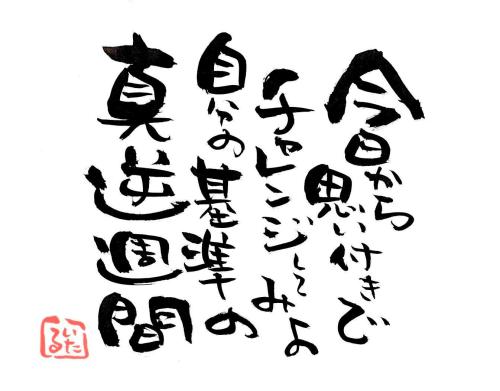 今日から
思い付きで
チャレンジしてみよ
自分の基準の
真逆週間
いたる